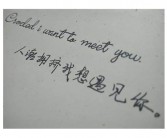 Crodal i want to meet you.
人潮拥挤我想遇见你.